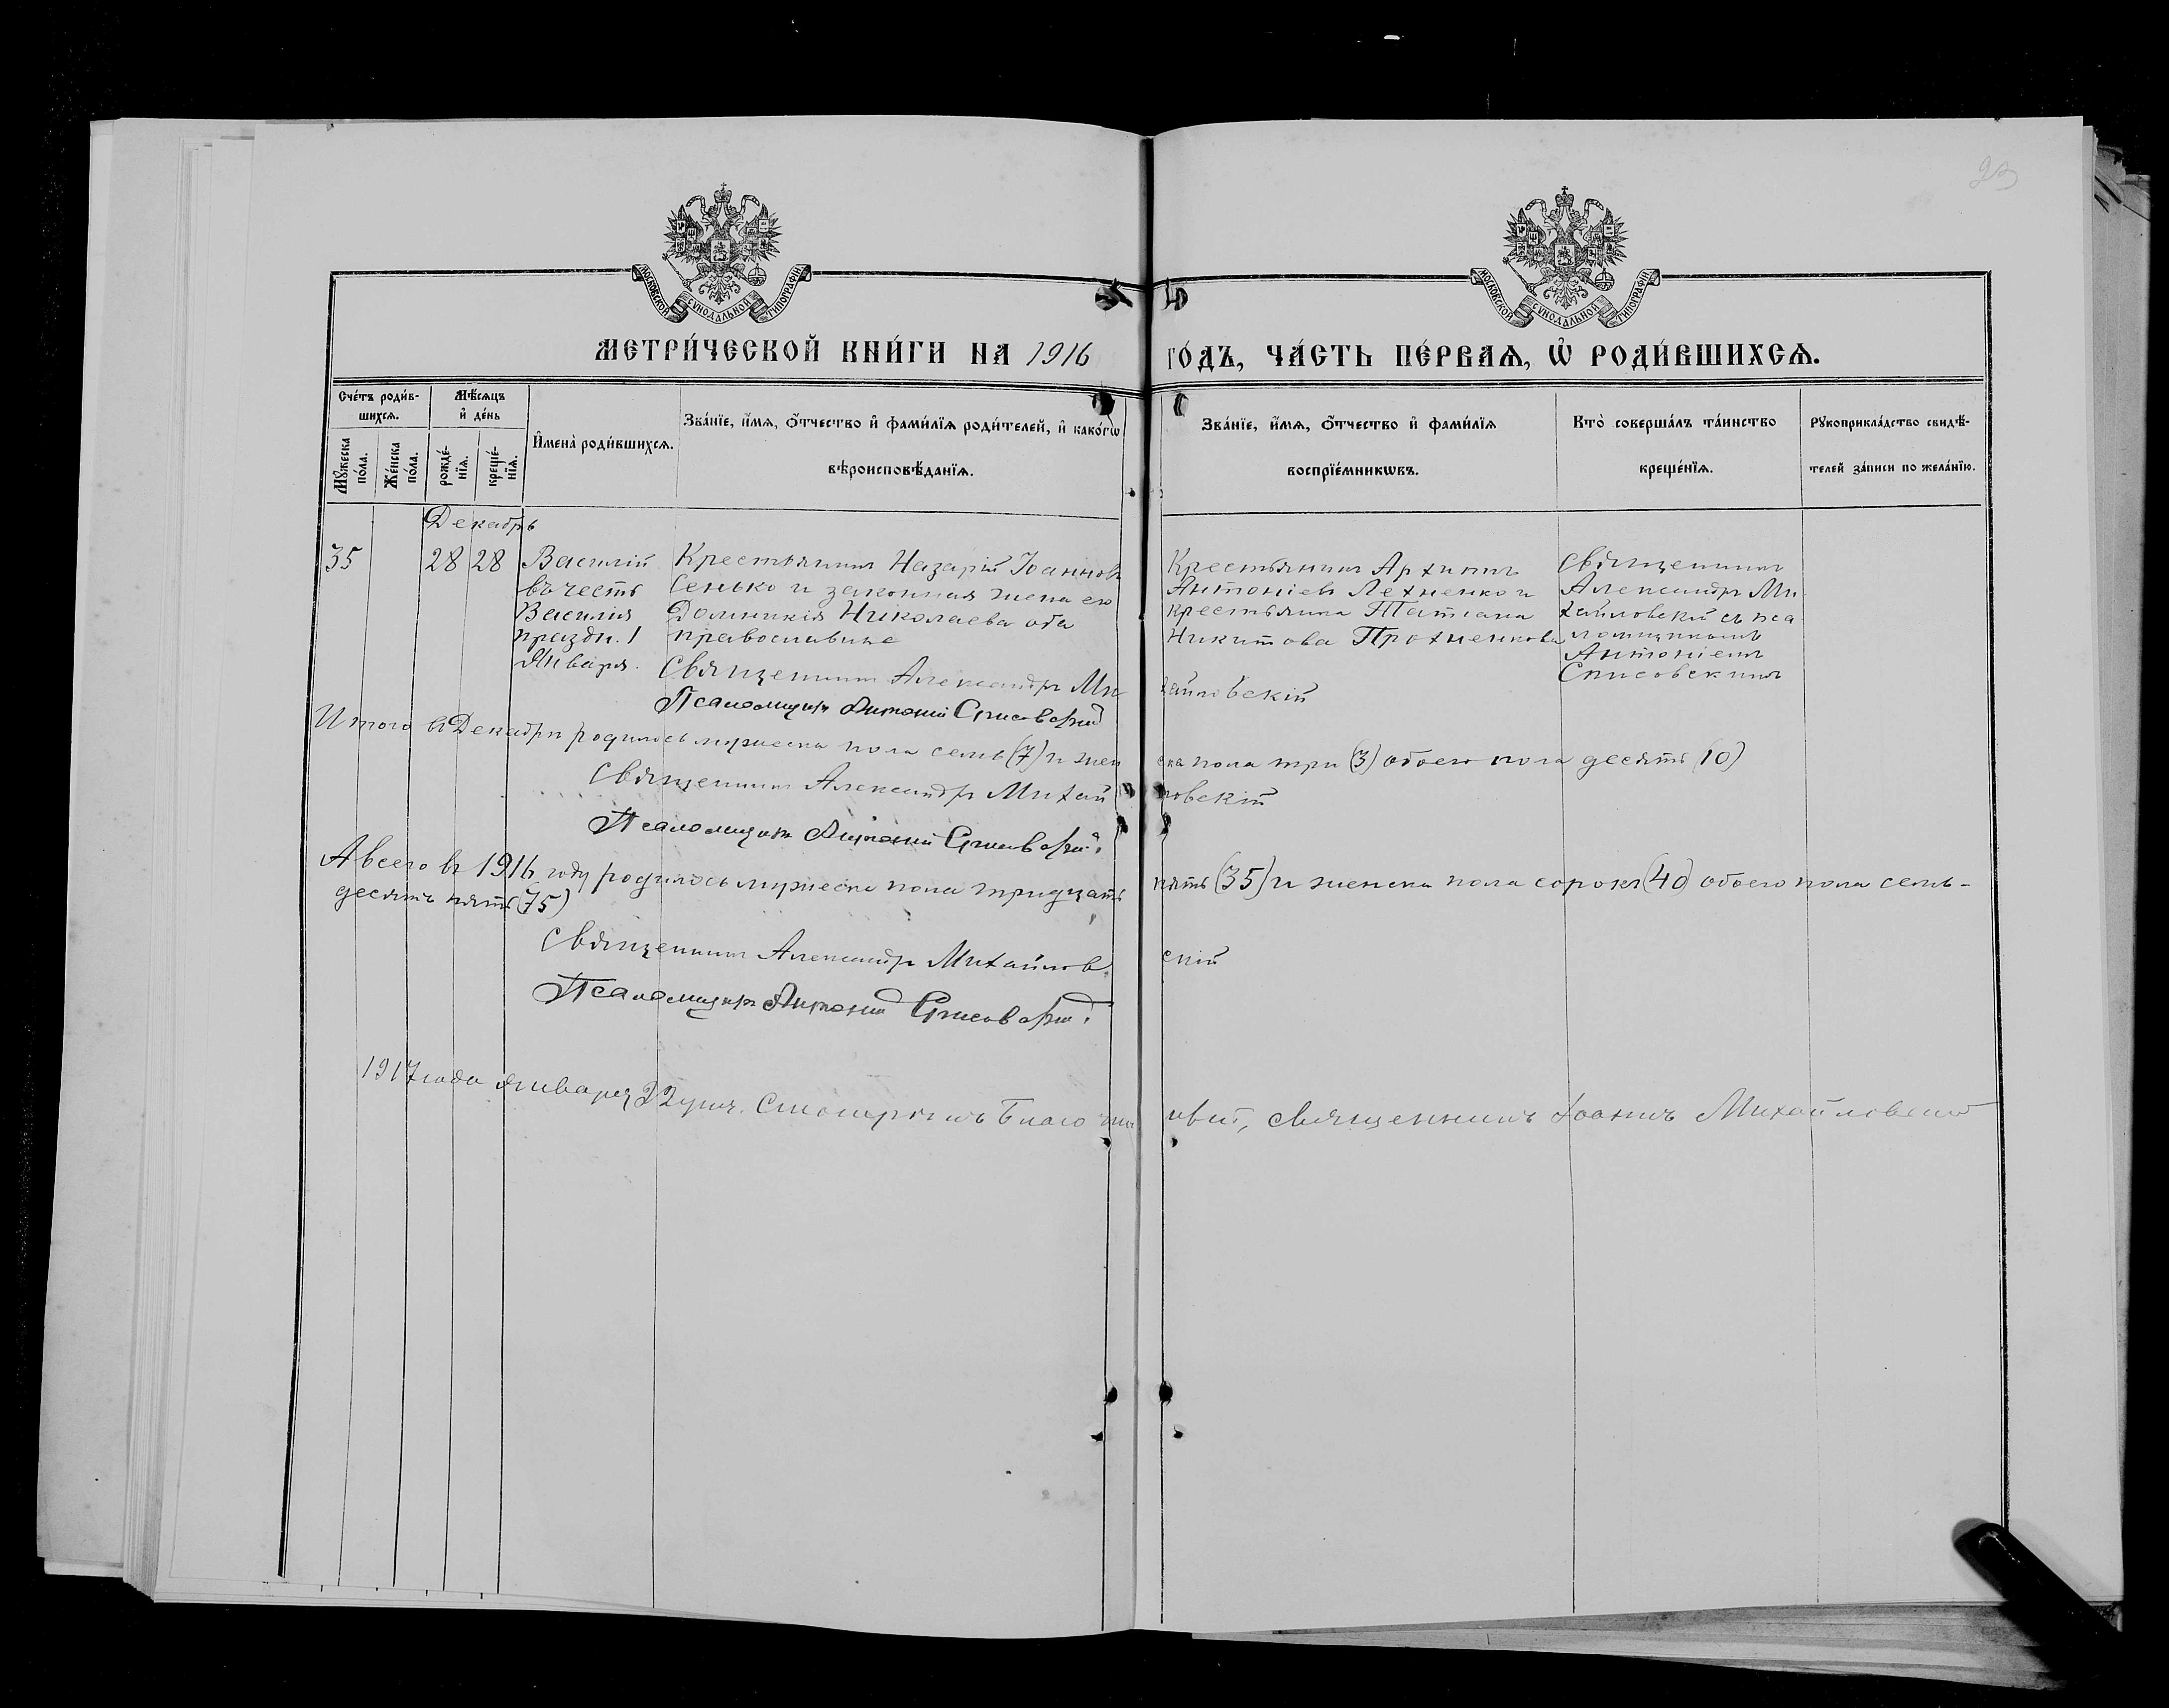 23
МОСКОВСКОЙ СУНОДАЛЬНОЙ ТИПОГРАФІИ
МОСКОВСКОЙ СУНОДАЛЬНОЙ ТИПОГРАФІИ
МЕТРИ́ЧЕСКОЙ КНИ́ГИ НА 1916 ГО́ДЪ, ЧА́СТЬ ПЕ́РВАѦ, Ѡ҆ РОДИ́ВШИХСѦ.
Сче́тъ роди́в-
шихсѧ.
Мꙋ́жеска
по́ла.
Же́нска
по́ла.
Мѣ́сѧцъ
и҆ де́нь
рожде́-
нїѧ.
креще́-
нїѧ.
И҆мена̀ роди́вшихсѧ.
Зва́нїе, и҆́мѧ, ѻ҆́тчество и҆ фами́лїѧ роди́телей, и҆ како́гѡ
вѣроисповѣ́данїѧ.
Зва́нїе, и҆́мѧ, ѻ҆́тчество и҆ фами́лїѧ
воспрїе́мникѡвъ.
Кто̀ соверша́лъ та́инство
креще́нїѧ.
Рꙋкоприкла́дство свидѣ́-
телей за́писи по жела́нїю.
Декабрь
35
28
28
Василій
въ честь
Василія
праздн. 1
Января.
Крестьянинъ Назарій Іоанновъ
Сенько и законная жена его
Домникія Николаева оба
православные
Крестьянинъ Архипъ
Антоніевъ Лехненко и
крестьянка Татіана
Никитова Прохненкова
Священникъ
Александръ Ми
хайловскій съ пса
ломщикомъ
Антоніемъ
Списовскимъ
Священникъ Александръ Михайловскій
Псаломщикъ Антоній Списовскій
Итого въ Декабрѣ родилось мужеска пола семь (7) и женска пола три (3) обоего пола десять (10)
Священникъ Александръ Михайловскій
Псаломщикъ Антоній Списовскій.
А всего въ 1916 году родилось мужеска пола тридцать пять (35) и женска пола сорокъ (40) обоего пола семь-
десятъ пять (75)
Священникъ Александръ Михайловскій
Псаломщикъ Антоній Списовскій.
1917 года января 22 дня. Смотрѣлъ Благочинный, священникъ Іоаннъ Михайловскій